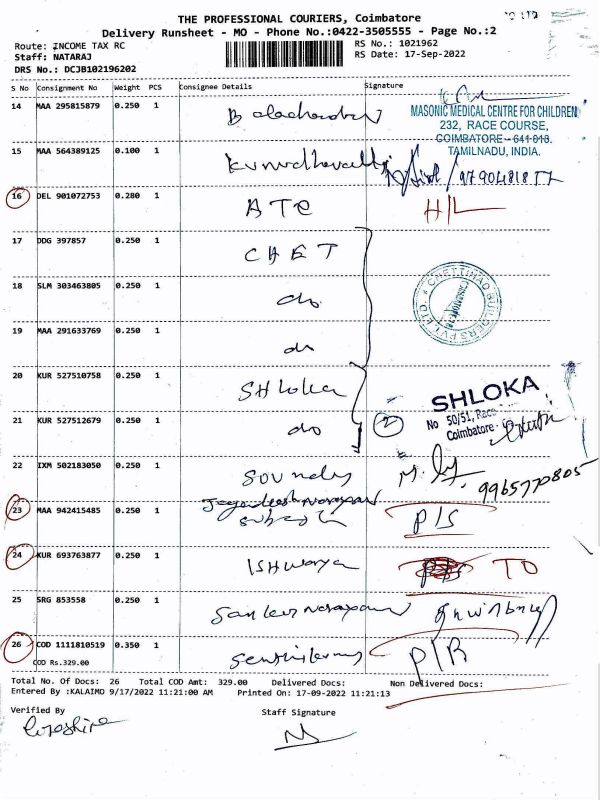 THE PROFESSIONAL COURIERS, Coimbatore
Delivery Runsheet - MO - Phone No.:0422-3505555 - Page No.:2
Route: INCOME TAX RC
RS No.: 1021962
Staff: NATARAJ
RS Date: 17-Sep-2022
DRS No.: DCJB102196202
S No Consignment No Weight PCS Consignee Details Signature
14 MAA 295815879 0.250 1
MASONIC MEDICAL CENTRE FOR CHILDREN
232, RACE COURSE,
COIMBATORE - 641 018.
TAMILNADU, INDIA.
15 MAA 564389125 0.100 1
16 DEL 901072753 0.280 1 ATC H/L
17 DDG 397857 0.250 1 CHET
CHETTINAD BUILDERS PVT. LTD.
18 SLM 303463805 0.250 1 do
19 MAA 291633769 0.250 1 do
20 KUR 527510758 0.250 1 SHloka
SHLOKA
No 50/51, Race
Coimbatore
21 KUR 527512679 0.250 1 do 2
22 IXM 502183050 0.250 1 9965770805
23 MAA 942415485 0.250 1 P/S
24 KUR 693763877 0.250 1 ISHwarya TO
25 SRG 853558 0.250 1
26 COD 1111810519 0.350 1 P/R
COD Rs.329.00
Total No. Of Docs: 26 Total COD Amt: 329.00 Delivered Docs: Non Delivered Docs:
Entered By :KALAIMO 9/17/2022 11:21:00 AM Printed On: 17-09-2022 11:21:13
Verified By
Staff Signature